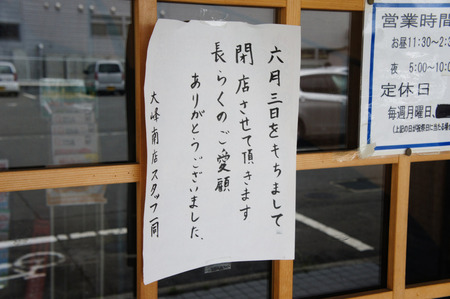 六月三日をもちまして
閉店させて頂きます
長らくのご愛顧
ありがとうございました、
大峰南店スタッフ一同
営業時間
お昼11:30～2:3
夜 5:00～10:0
定休日
毎週月曜日、
(上記の日が祝祭日に当たる場合